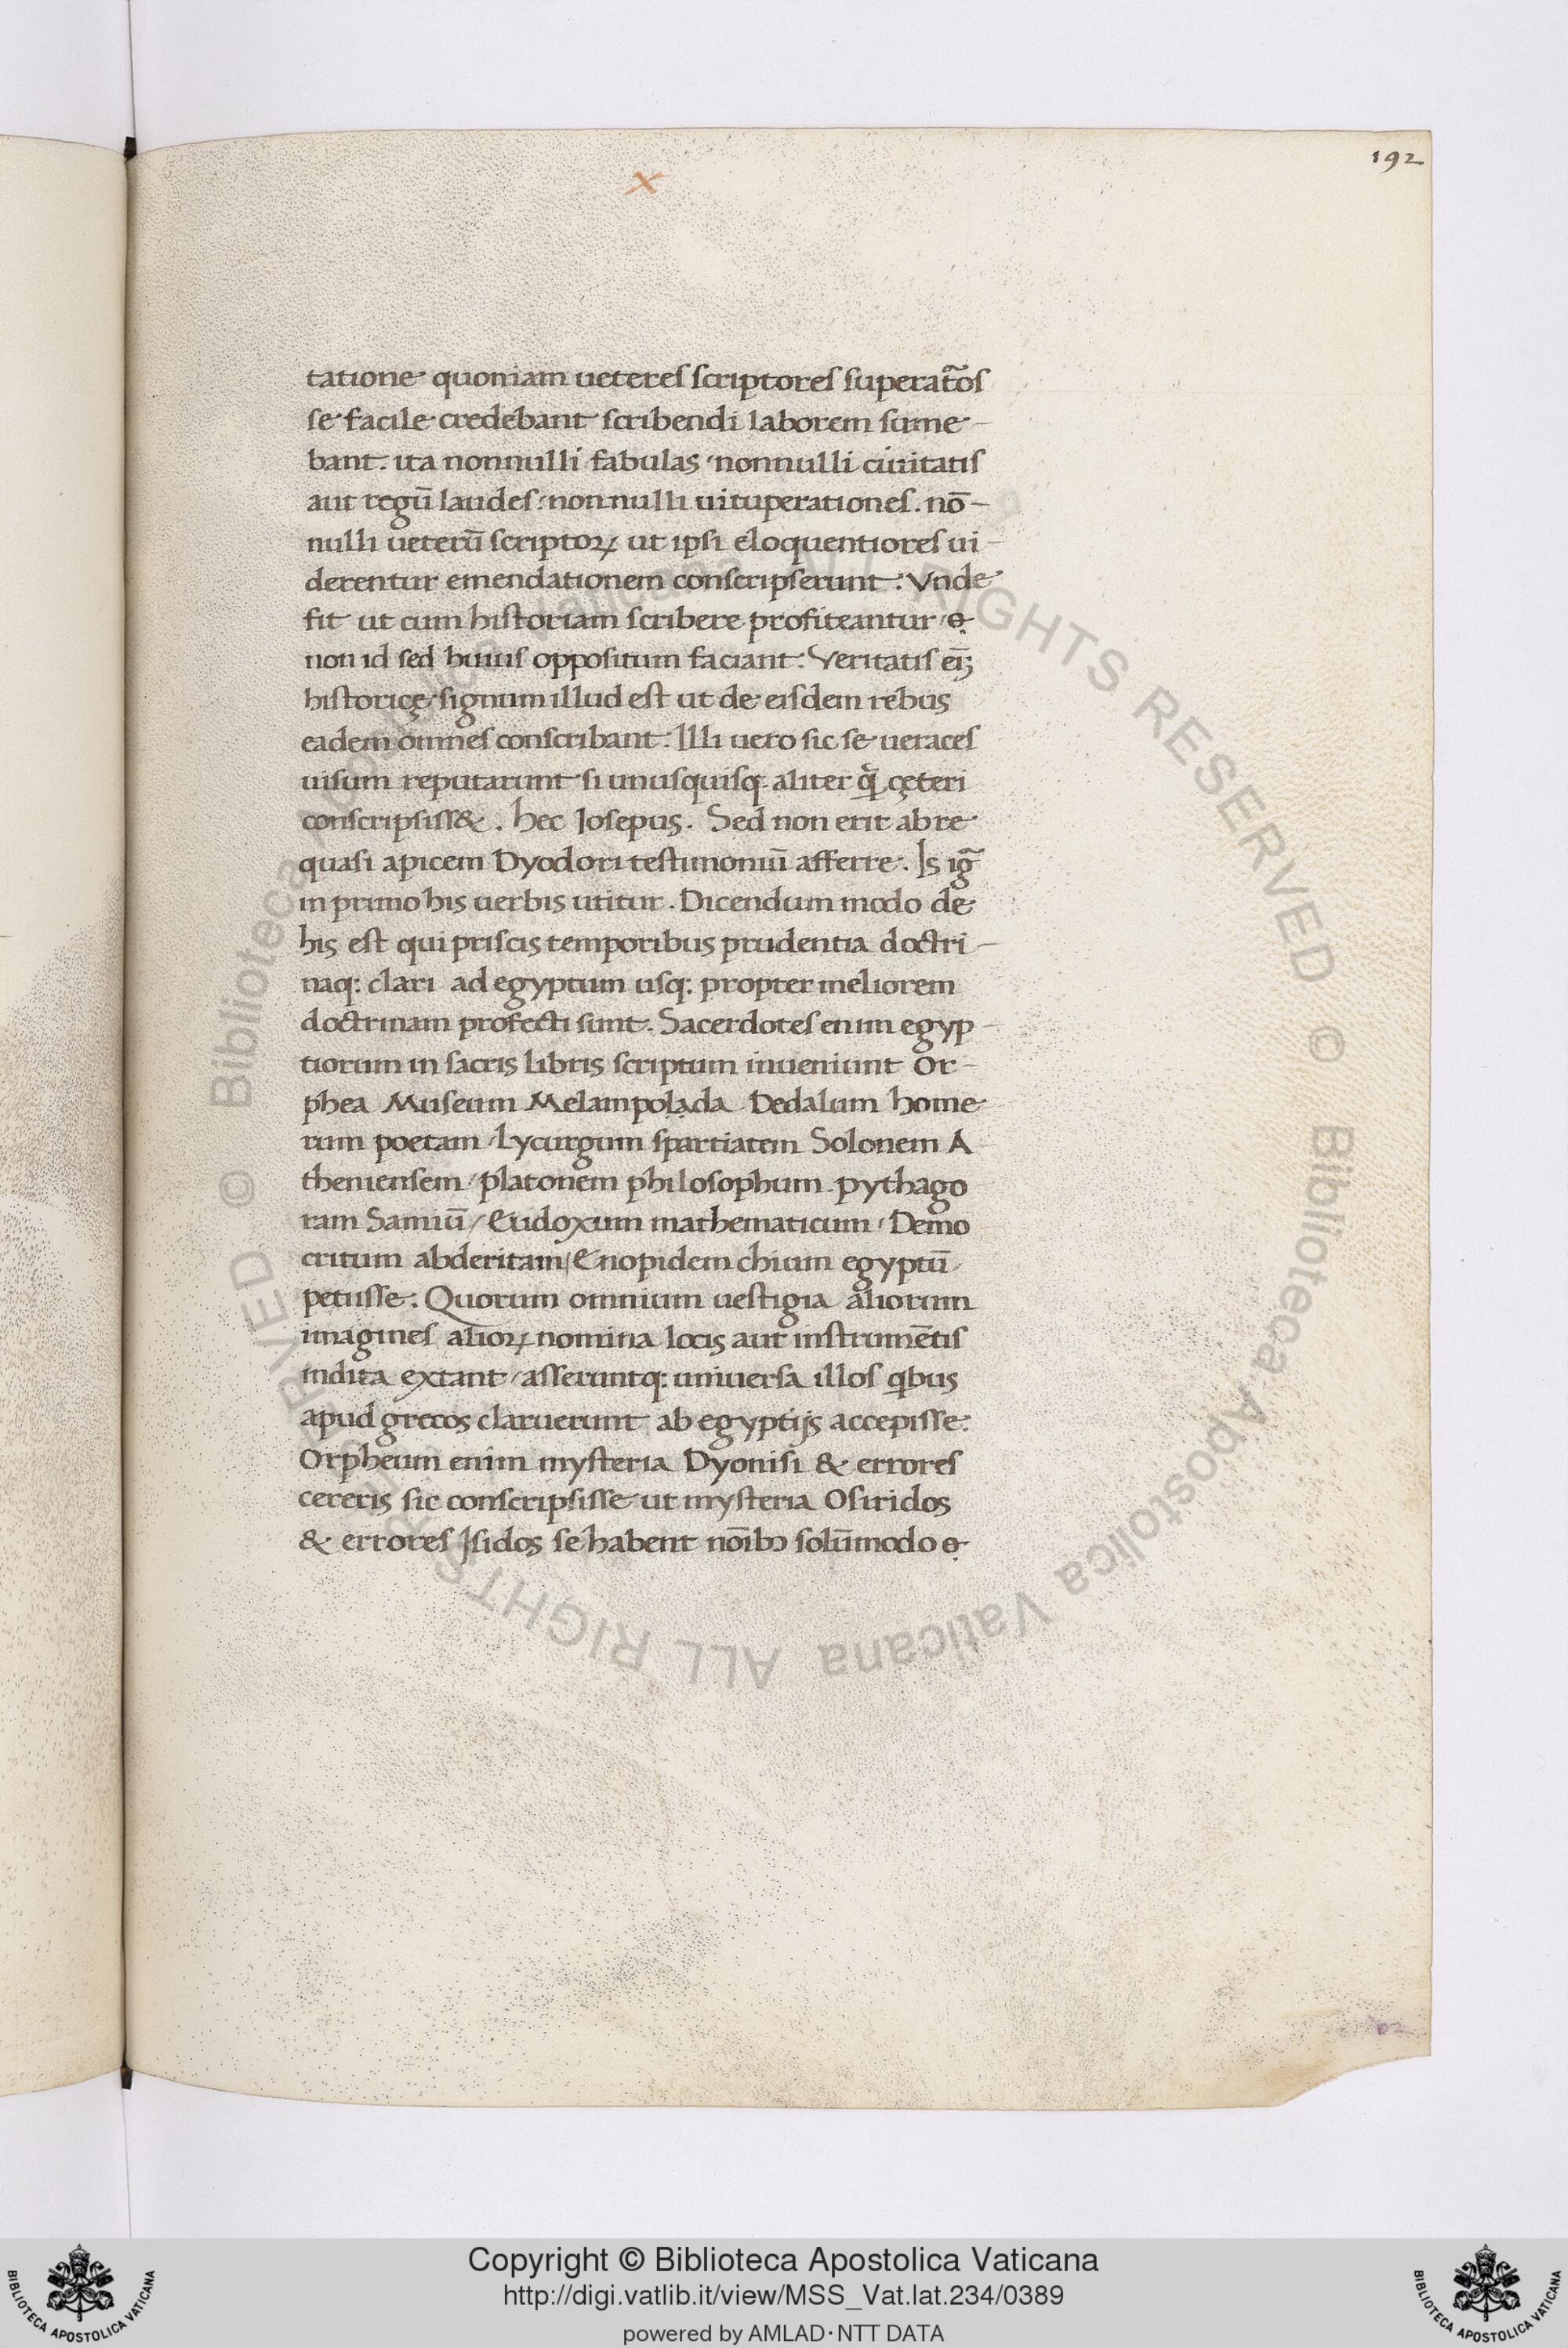 192
x
tatione quoniam ueteres scriptores superat̃os
se facile credebant scribendi laborem sume-
bant. ita nonnulli fabulas / nonnulli ciuitatis
aut regū laudes: nonnulli uituperationes. nō-
nulli ueterū scriptoꝝ ut ipsi eloquentiores ui-
derentur emendationem conscripserunt: Vnde
fit ut cum historiam scribere profiteantur /
non id sed huius oppositum faciant: Veritatis
historicę signum illud est ut de eisdem rebus
eadem omnes conscribant: Illi uero sic se ueraces
uisum reputarunt si unusquisq. aliter ceteri
conscripsiss&. hec Josepus. Sed non erit ab re
quasi apicem Dyodori testimoniū afferre. Is ig̃
in primo his uerbis utitur. Dicendum modo de
his est qui priscis temporibus prudentia doctri-
naq: clari ad egyptum usq: propter meliorem
doctrinam profecti sunt. Sacerdotes enim egyp-
tiorum in sacris libris scriptum inueniunt Or-
phea Museum Melampolada Dedalum home
rum poetam / Lycurgum spartiatem Solonem A
theniensem / platonem philosophum pythago
ram Samiū / Eudoxum mathematicum / Demo
critum abderitam / Enopidem chium egyptū
petiisse. Quorum omnium uestigia aliorum
imagines alioꝝ nomina locis aut instrumētis
indita extant / asseruntq: uniuersa illos qibus
apud grecos claruerunt ab egyptijs accepisse:
Orpheum enim mysteria Dyonisi & errores
cereris sic conscripsisse ut mysteria Osiridos
& errores Isidos se habent solūmodo
© Biblioteca Apostolica Vaticana ALL RIGHTS RESERVED © Biblioteca Apostolica Vaticana ALL RIGHTS RESERVED
Copyright © Biblioteca Apostolica Vaticana
http://digi.vatlib.it/view/MSS_Vat.lat.234/0389
powered by AMLAD·NTT DATA
BIBLIOTECA APOSTOLICA VATICANA
BIBLIOTECA APOSTOLICA VATICANA